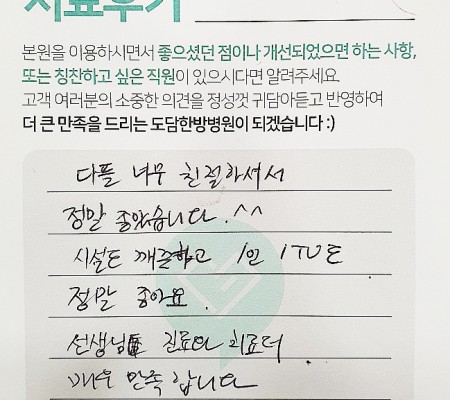 치료후기
본원을 이용하시면서 좋으셨던 점이나 개선되었으면 하는 사항,
또는 칭찬하고 싶은 직원이 있으시다면 알려주세요.
고객 여러분의 소중한 의견을 정성껏 귀담아듣고 반영하여
더 큰 만족을 드리는 도담한방병원이 되겠습니다 :)
다들 너무 친절하셔서
정말 좋았습니다. ^^
시설도 깨끗하고 1인 1TV도
정말 좋아요
선생님들 진료와 치료더
매우 만족 합니다